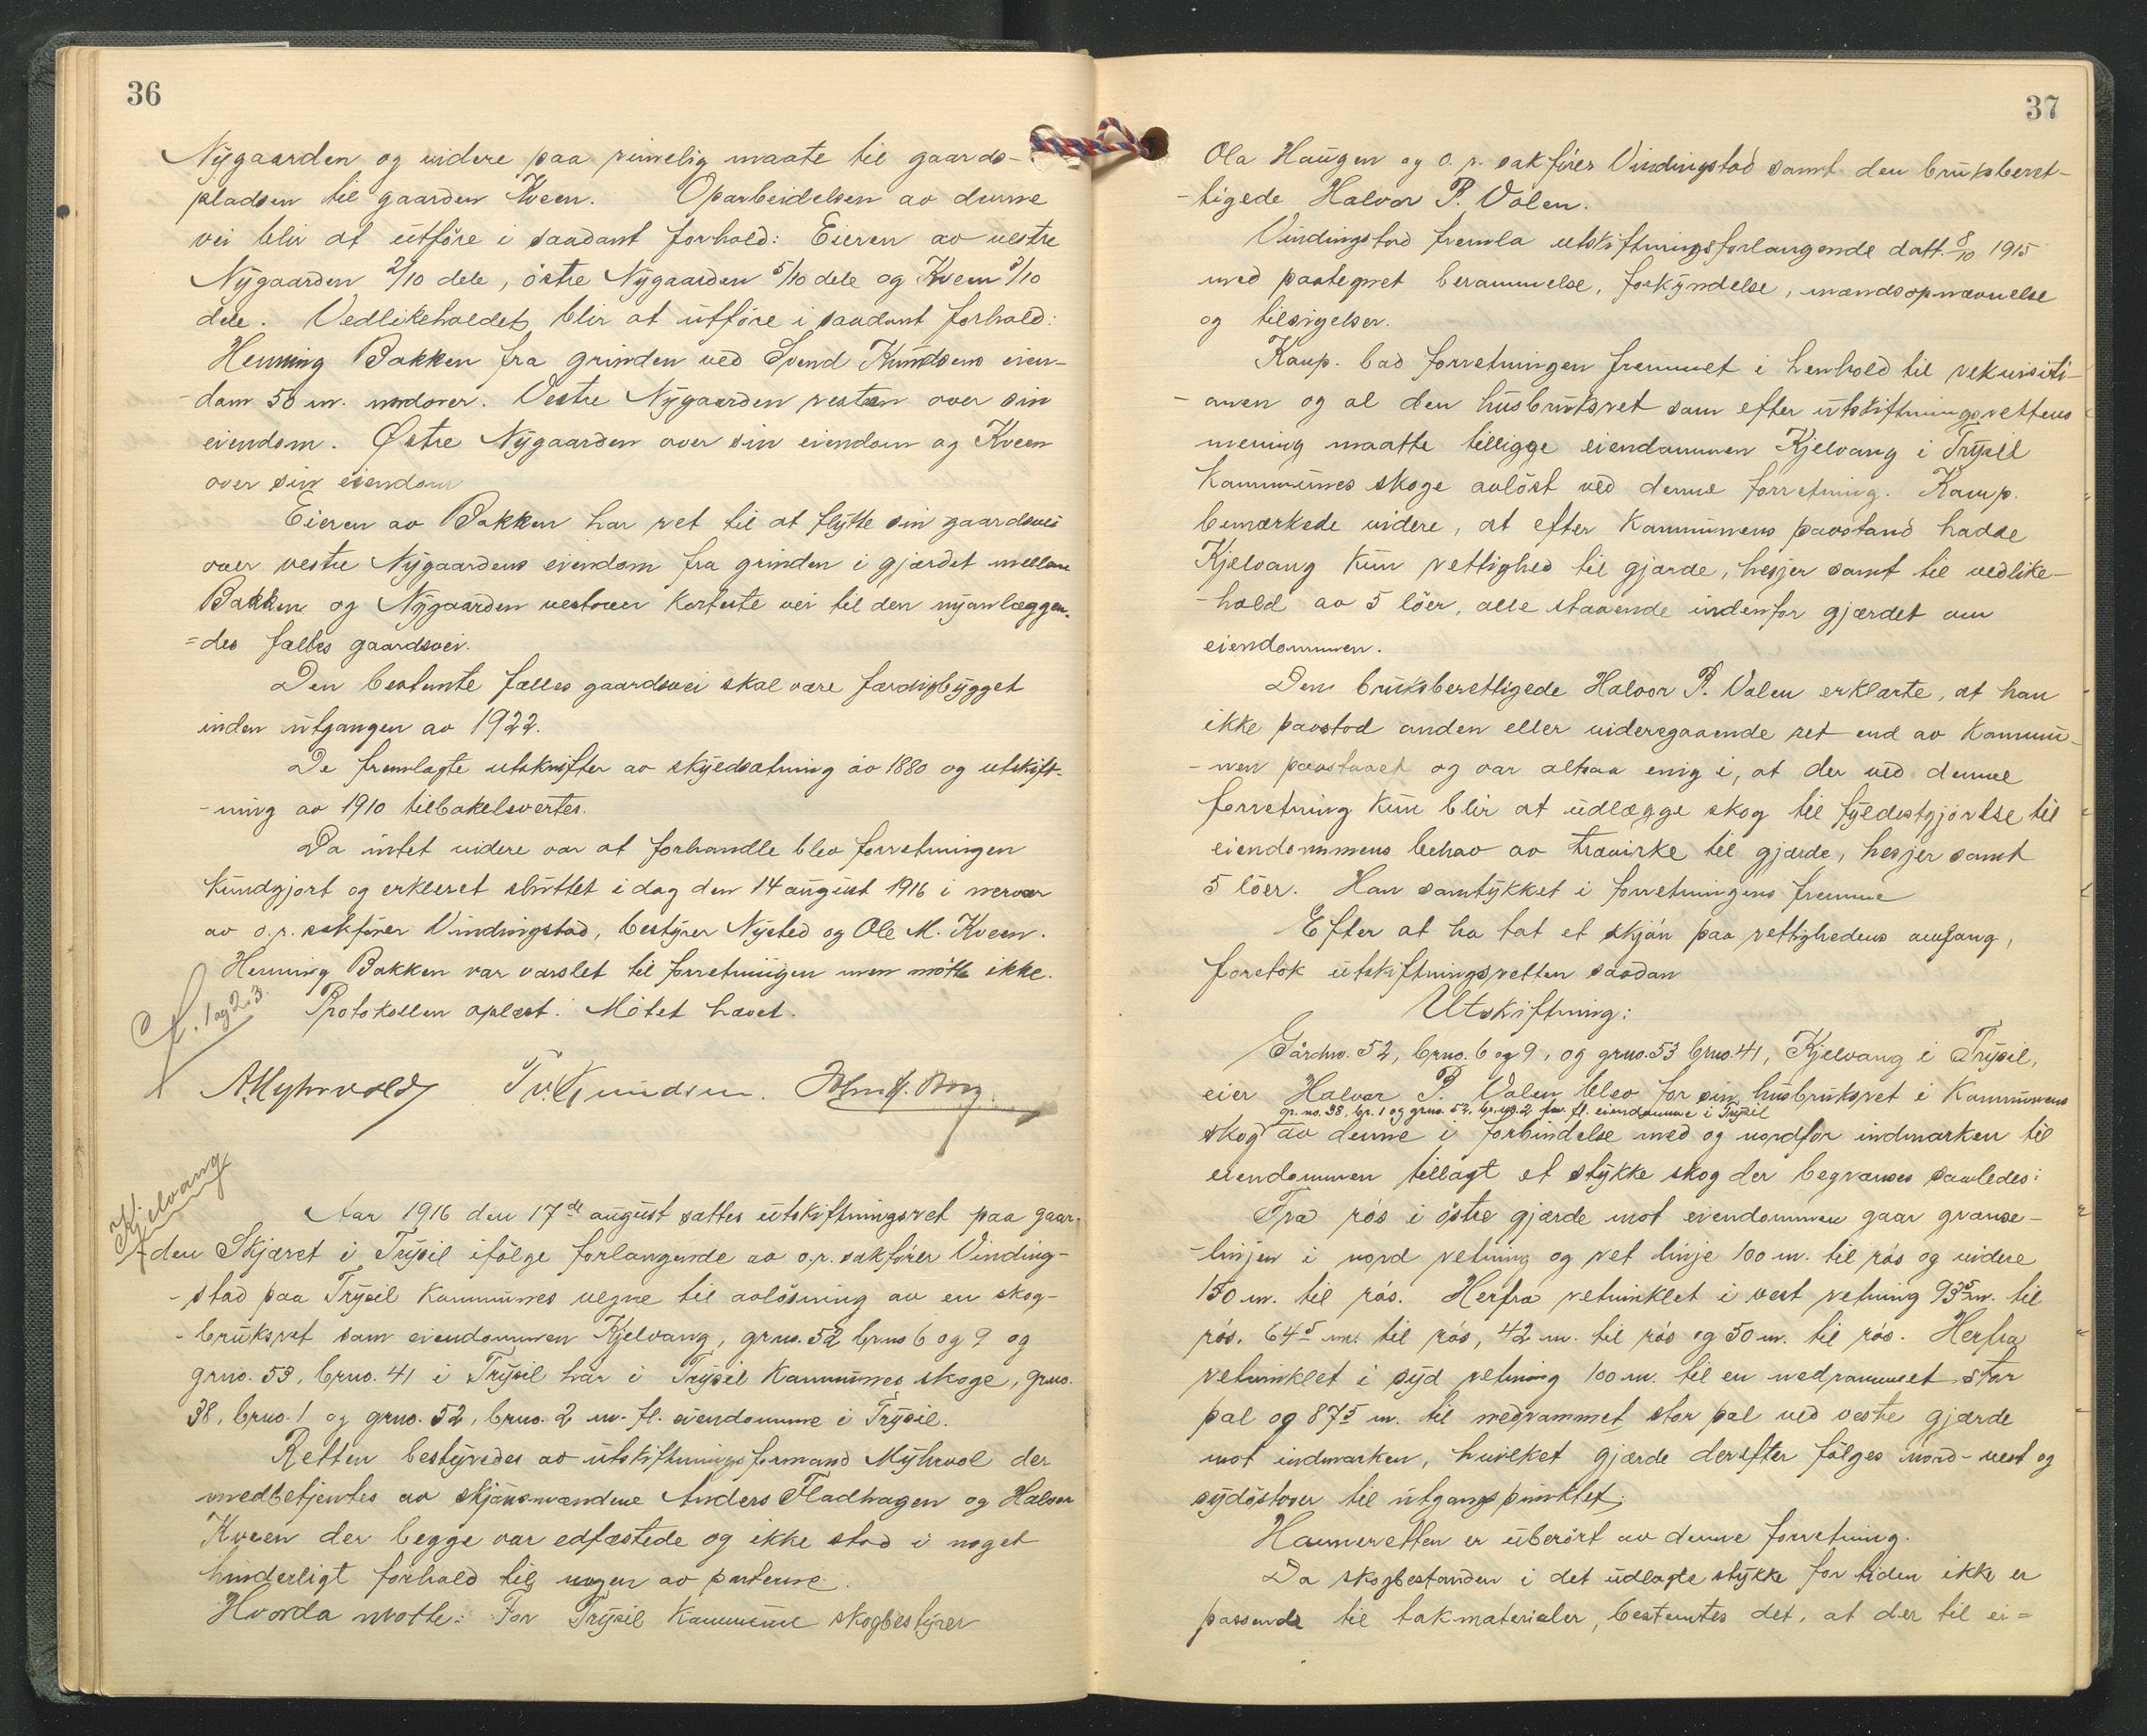 36
Nygaarden og videre paa rimelig maate til gaards-
pladsen til gaarden Kveen. Oparbeidelsen av denne
vei blir at utføre i saadant forhold: Eieren av vestre
Nygaarden 2/10 dele, østre Nygaarden 5/10 dele og Kveen 3/10
dele. Vedlikeholdet blir at utføre i saadant forhold:
Henning Bakken fra grinden ved Svend Knudsens eien-
-dom 50 m. nordover. Vestre Nygaarden resten over sin
eiendom. Østre Nygaarden over sin eiendom og Kveen
over sin eiendom
Eieren av Bakken har ret til at flytte sin gaardsvei
over vestre Nygaardens eiendom fra grinden i gjærdet mellem
Bakken og Nygaarden vestover korteste vei til den nyanlæggen-
=des fælles gaardsvei.
Den bestemte fælles gaardsvei skal være færdigbygget
inden utgangen av 1922.
De fremlagte utskrifter av skyldsætning av 1880 og utskift-
-ning av 1910 tilbakelevertes.
Da intet videre var at forhandle blev forretningen
kundgjort og erklæret sluttet i dag den 14 august 1916 i nervær
av o.r. sakfører Vindingstad, bestyrer Nysted og Ole M. Kveen.
Henning Bakken var varslet til forretningen men møtte ikke.
Protokollen oplæst. Møtet hævet.
1 og 2. 3.
A. Myhrvold T. v. Gundersen. John H. Borg.
Kjelvang
Aar 1916 den 17de august sattes utskiftningsret paa gaar-
den Skjæret i Trysil ifølge forlangende av o.r. sakfører Vinding-
-stad paa Trysil kommunes vegne til avløsning av en skog-
-bruksret som eiendommen Kjelvang, grno. 52 brno 6 og 9 og
grno. 53, brno. 41 i Trysil har i Trysil kommunes skoge, grno.
38, brno. 1 og grno. 52, brno. 2 m. fl. eiendomme i Trysil.
Retten bestyredes av utskiftningsformand Myhrvol der
medbetjentes av skjønsmændene Anders Fladhagen og Halvor
Kveen der begge var edfæstede og ikke stod i noget
hinderligt forhold til nogen av parterne.
Hvorda møtte: For Trysil kommune skogbestyrer
37
Ola Haugen og o.r. sakfører Vindingstad samt den bruksberet-
-tigede Halvor P. Volen.
Vindingstad fremla utskiftningsforlangende datt. 8/10 1915
med paategnet berammelse, forkyndelse, mandsopnævnelse
og tilsigelser.
Komp. bad forretningen fremmet i henhold til rekvisiti-
-onen og al den husbruksret som efter utskiftningsrettens
mening maatte tilligge eiendommen Kjelvang i Trysil
kommunes skoge avløst ved denne forretning. Komp.
bemærkede videre, at efter kommunens paastand hadde
Kjelvang kun rettighed til gjærde, hesjer samt til vedlike-
-hold av 5 løer, alle staaende indenfor gjærdet om
eiendommen.
Den bruksberettigede Halvor P. Volen erklærte, at han
ikke paastod anden eller videregaaende ret end av kommu-
-nen paastaaet og var altsaa enig i, at der ved denne
forretning kun blir at udlægge skog til fyldestgjørelse til
eiendommens behov av trævirke til gjærde, hesjer samt
5 løer. Han samtykket i forretningens fremme
Efter at ha tat et skjøn paa rettighedens omfang,
foretok utskiftningsretten saadan
Utskiftning:
Gårdno. 52, brno. 6 og 9, og grno. 53 brno. 41, Kjelvang i Trysil,
eier Halvor P. Volen blev for sin husbruksret i kommunens
gr. no. 38, br. 1 og grno. 52, br. no. 2 m. fl. eiendomme i Trysil
skog av denne i forbindelse med og nordfor indmarken til
eiendommen tillagt et stykke skog der begrænses saaledes:
Fra røs i østre gjærde mot eiendommen gaar grænse-
-linjen i nord retning og ret linje 100 m. til røs og videre
150 m. til røs. Herfra retvinklet i vest retning 93⁵ m. til
røs, 64⁵ m. til røs, 42 m. til røs og 50 m. til røs. Herfra
retvinklet i syd retning 100 m. til en nedrammet stor
pæl og 87⁵ m. til nedrammet stor pæl ved vestre gjærde
mot indmarken, hvilket gjærde derefter følges nord-vest og
sydøstover til utgangspunktet.
Havneretten er uberørt av denne forretning.
Da skogbestanden i det udlagte stykke for tiden ikke er
passende til takmaterialer, bestemtes det, at der til ei=